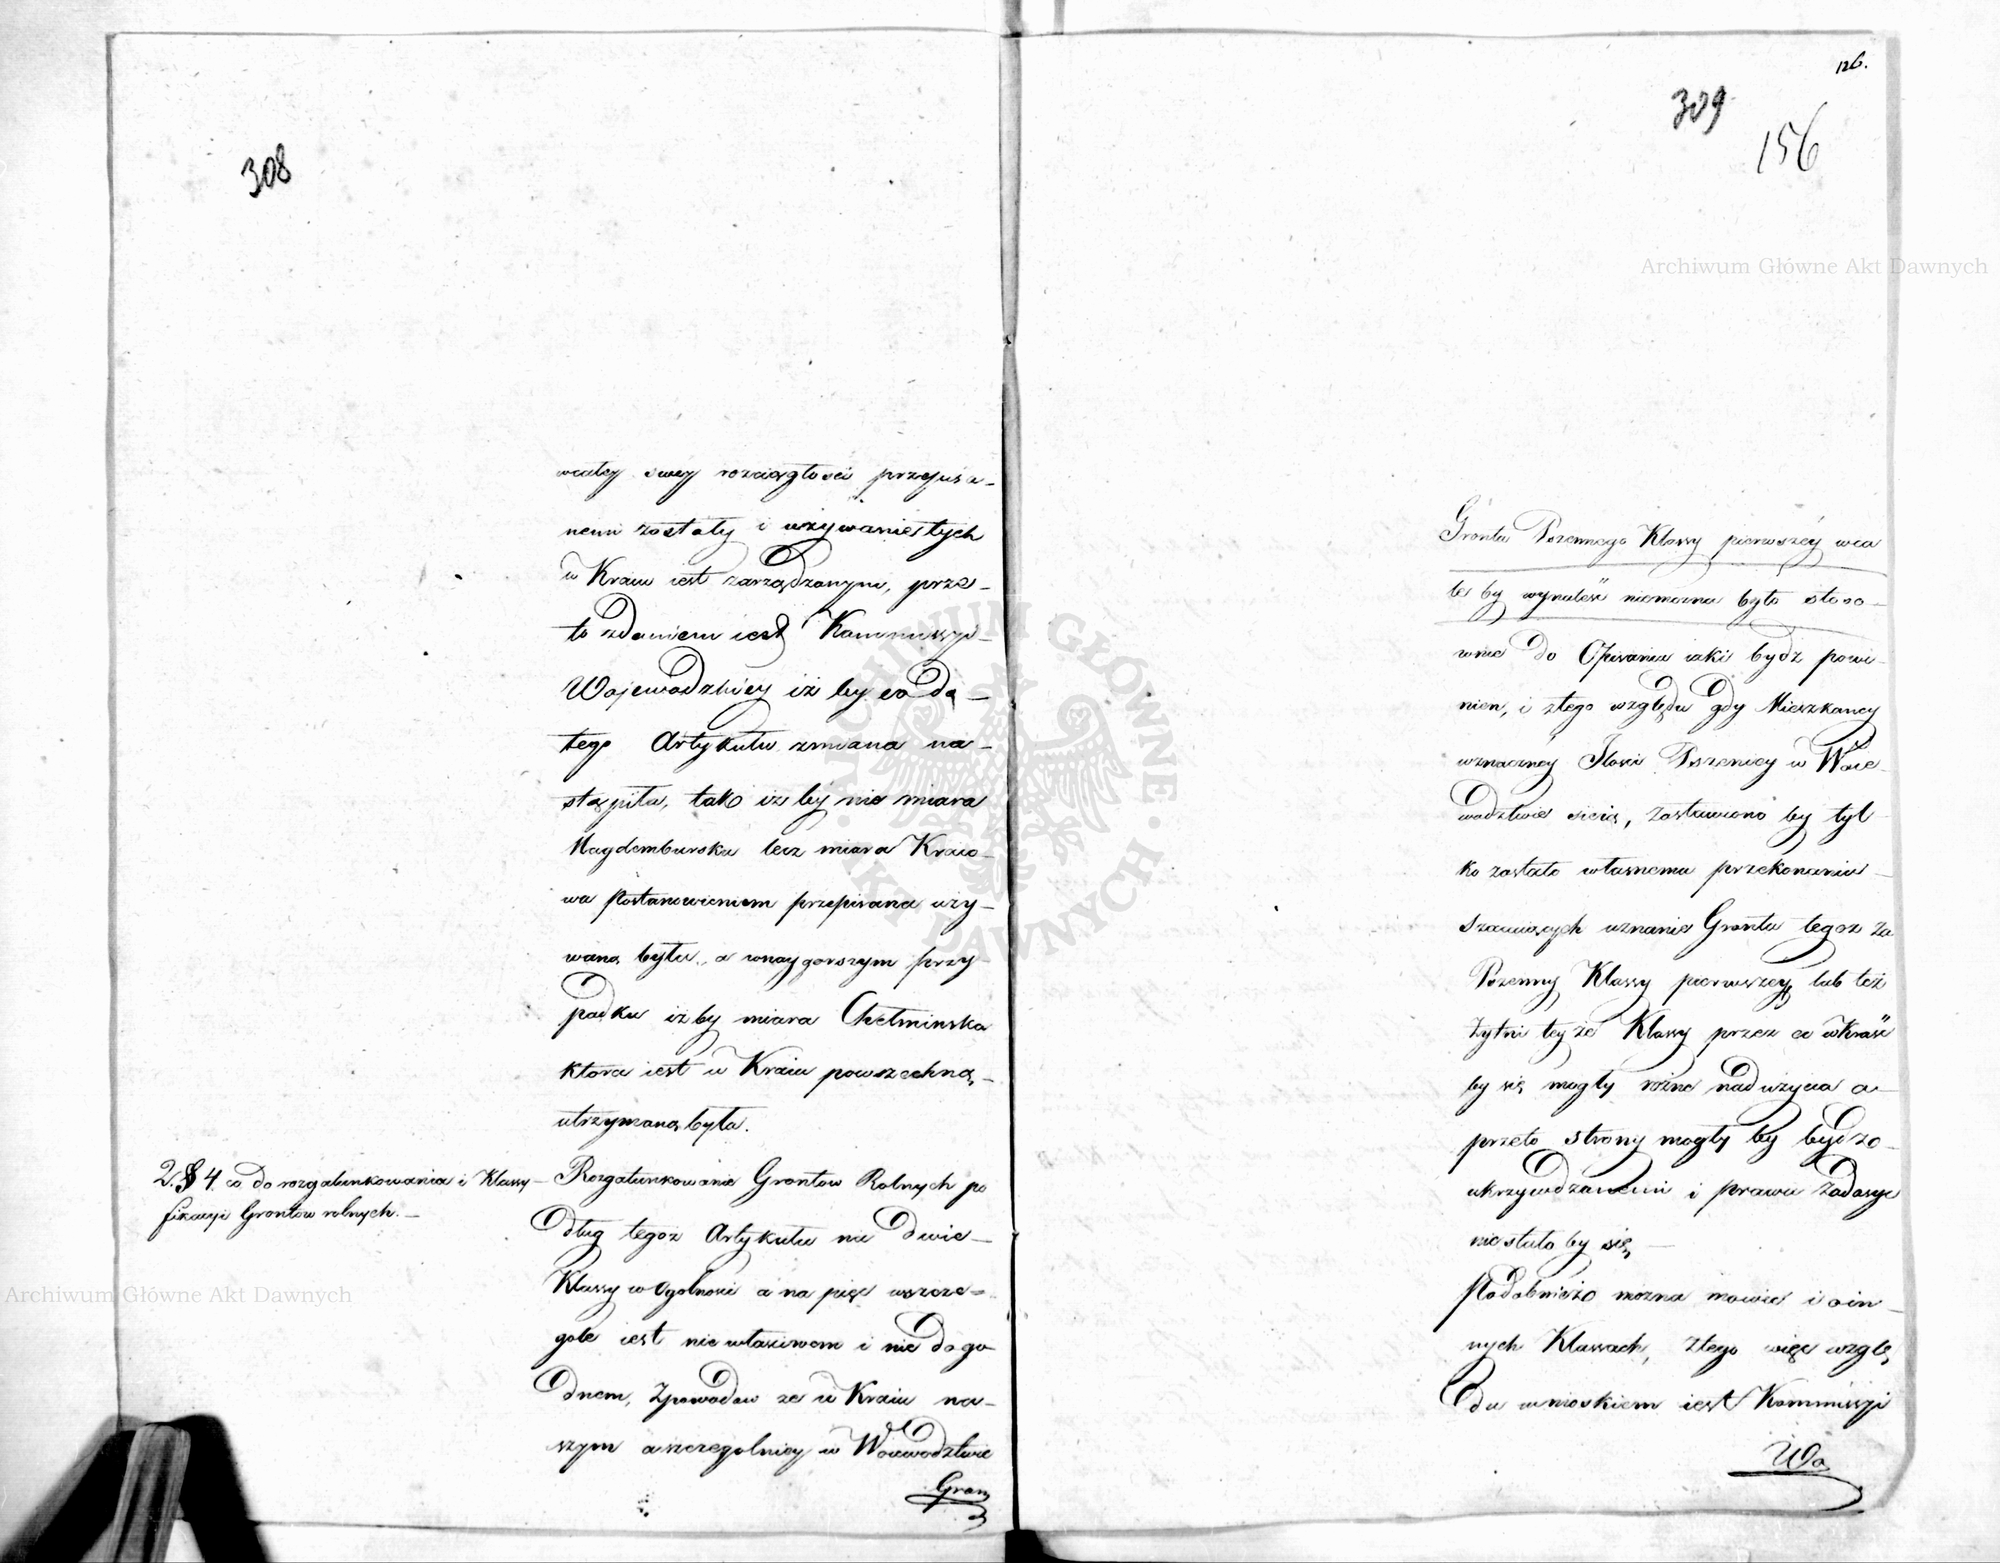 308
wcałey swey rozciągłości przepisa-
nemi zostały i używanie tych
w Kraiu iest zarządzonym, prze-
to zdaniem iest Kommissyi
Wojewodzkiey iż by co do
tego Artykułu zmiana na-
stąpiła, tak iż by nie miara
Magdemburska lecz miara Kraio-
wa Postanowieniem przepisana uży-
waną była, a w naygorszym przy
padku iż by miara Chełminska
ktora iest w Kraiu powszechną,
utrzymaną była.
2. § 4. co do rozgatunkowania i Klassy-
fikacyi Grontow rolnych. -
Rozgatunkowanie Grontow Rolnych po
dług tegoż Artykułu na dwie
Klassy w Ogolnosci a na pięć wszcze-
gole iest nie własciwem i nie dogo
dnem, Zpowodow ze w Kraiu na-
szym a szczegolniey w Woiewodztwie
Gron
126.
309
156
Grontu Pszennego Klassy pierwszey wca
le by wynaleść niemożna było stoso-
wnie do Opisania iaki bydź powi-
nien, i z tego względu gdy Mieszkancy
wznaczney Ilosci Pszenicy w Woie-
wodztwie sieią, zostawiono by tyl
ko zostało własnemu przekonaniu
szacuiących uznanie Grontu tegoz za
Pszenny Klassy pierwszey, lub też
Żytni teyże Klassy przez co wkraść
by się mogły rożne nadużycia a-
przeto strony mogły by bydź po-
ukrzywdzanemi i prawu Zadosyc
nie stało by się
Podobnież można mowić i o in-
nych Klassach, z tego więc wzglę
du wnioskiem iest Kommissyi
Wo
Archiwum Główne Akt Dawnych
Archiwum Główne Akt Dawnych
ARCHIWUM GŁÓWNE AKT DAWNYCH